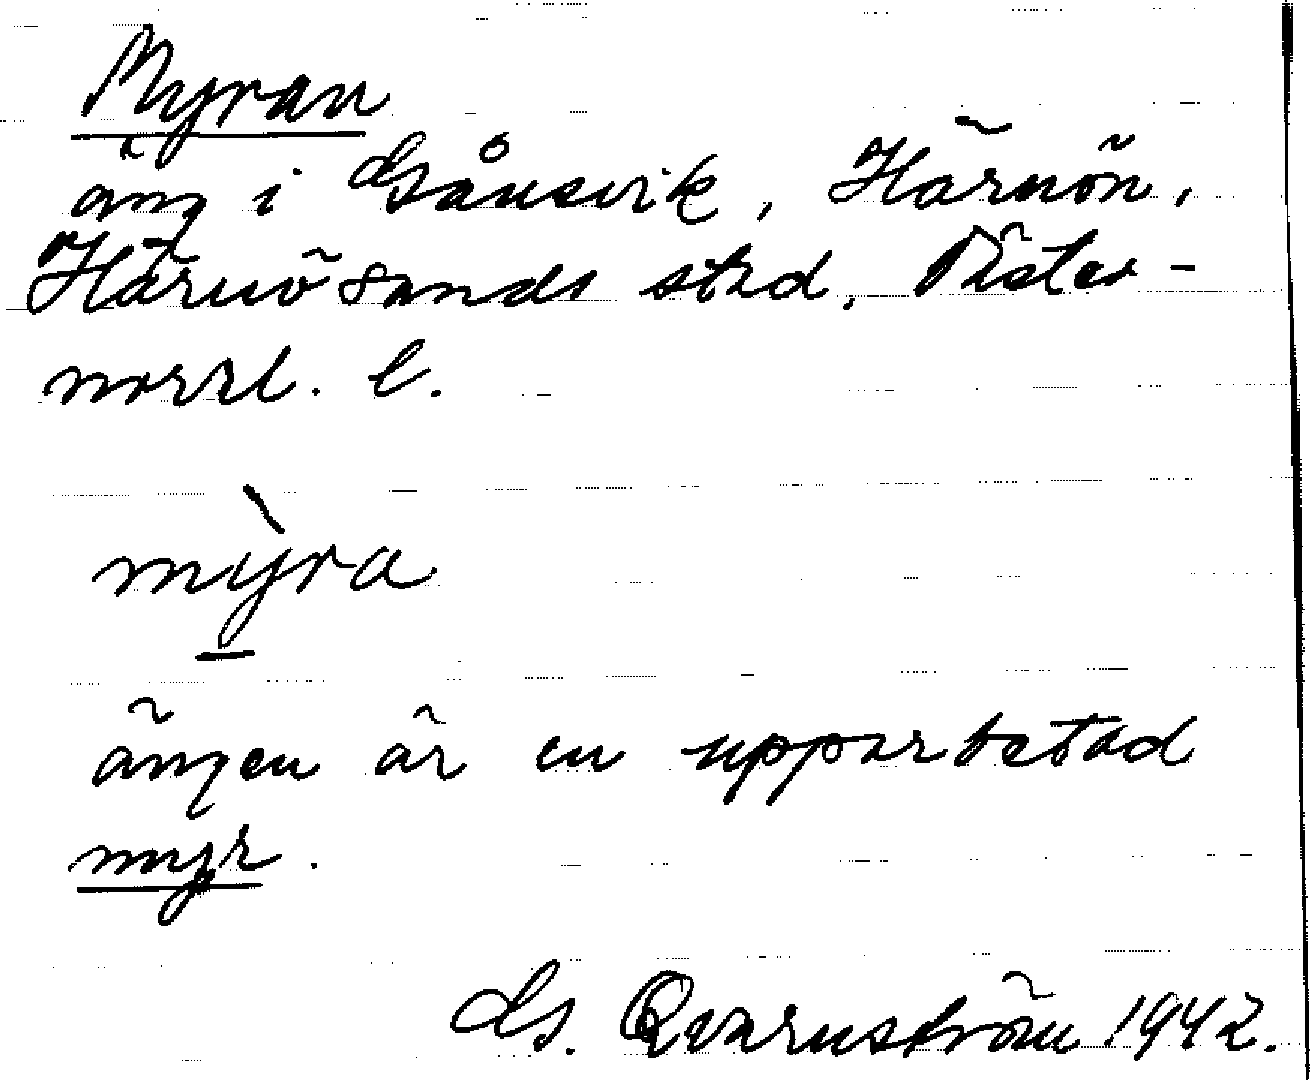 Myran
äng i Gånsvik, Härnön,
Härnösands stad, Väster-
norrl. l.
mỳra
ängen är en upparbetad
myr.
G. Qvarnström 1942.